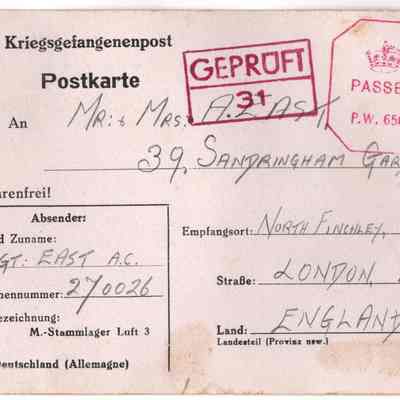 Kriegsgefangenenpost
Postkarte
GEPRÜFT
31
PASSE
P.W. 65
An MR: & MRS. A. EAST,
39, SANDRINGHAM GAR
renfrei!
Absender:
d Zuname:
GT: EAST A.C.
nennummer: 270026
ezeichnung:
M.-Stammlager Luft 3
Deutschland (Allemagne)
Empfangsort: NORTH FINCHLEY,
Straße: LONDON,
Land: ENGLAND
Landesteil (Provinz usw.)